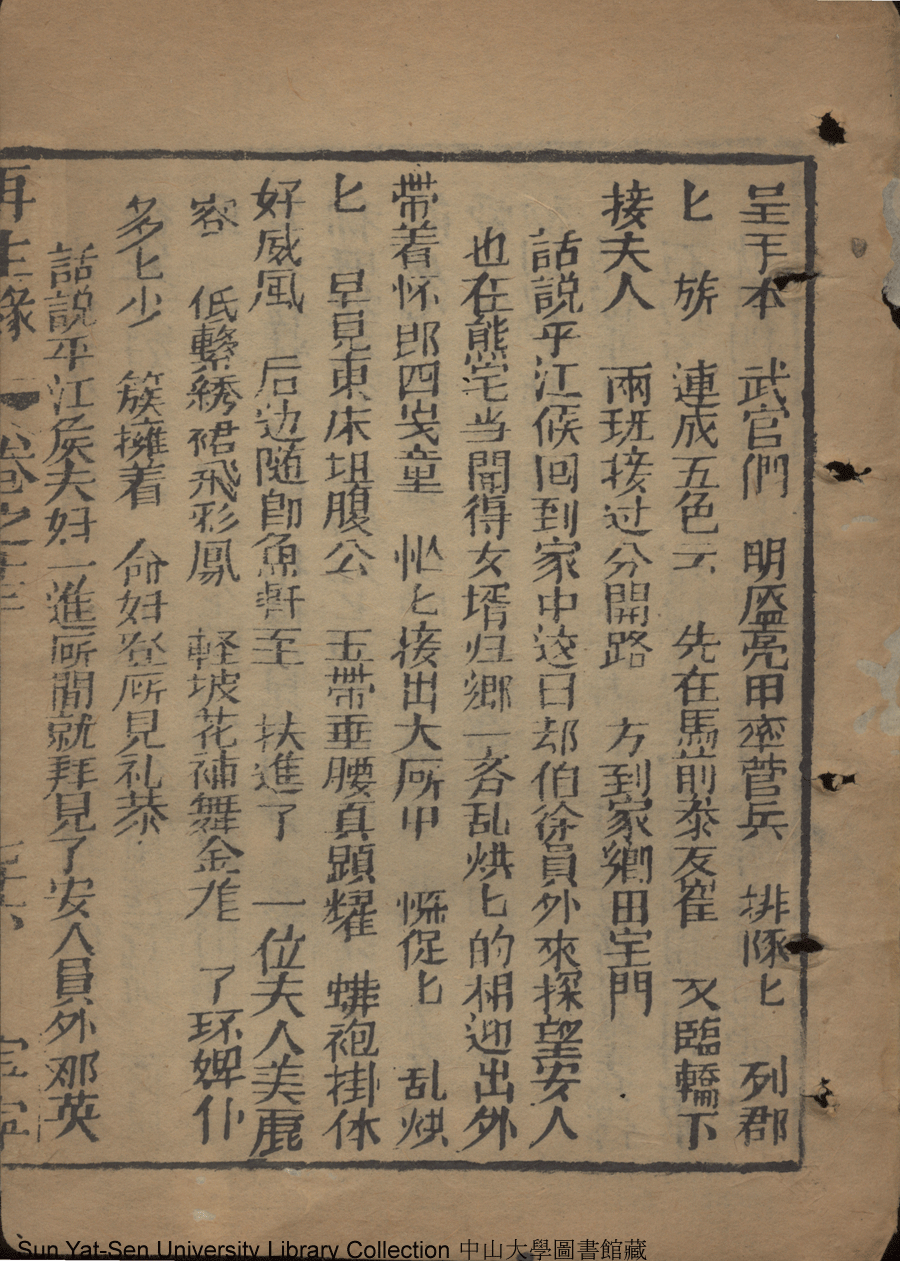 呈手本　武官們　明盔亮甲率营兵　排隊匕　列郡
匕　族　連成五色云　先在馬前恭友窄　又臨轎下
接夫人　兩班接过分開路　方到家鄉田宅門
話説平江候回到家中这日却伯徐員外來探望安人
也在熊宅当聞得女壻归鄉一齐乱烘匕的相迎出外
带着怀郎四岁童　忙匕接出大厛中　慌促匕　乱烘
匕　早見東床坦腹公　玉带垂腰真顕耀　蟒袍掛体
好威風　后边随即魚軒至　扶進了　一位夫人美鹿
容　低繫綉裙飛彩鳳　軽披花補舞金龙　了环婢仆
多匕少　簇擁着　命妇登厛見礼恭
話説平江侯夫妇一進厛間就拜見了安人員外那英
再生緣　卷之
Sun Yat-Sen University Library Collection 中山大學圖書館藏